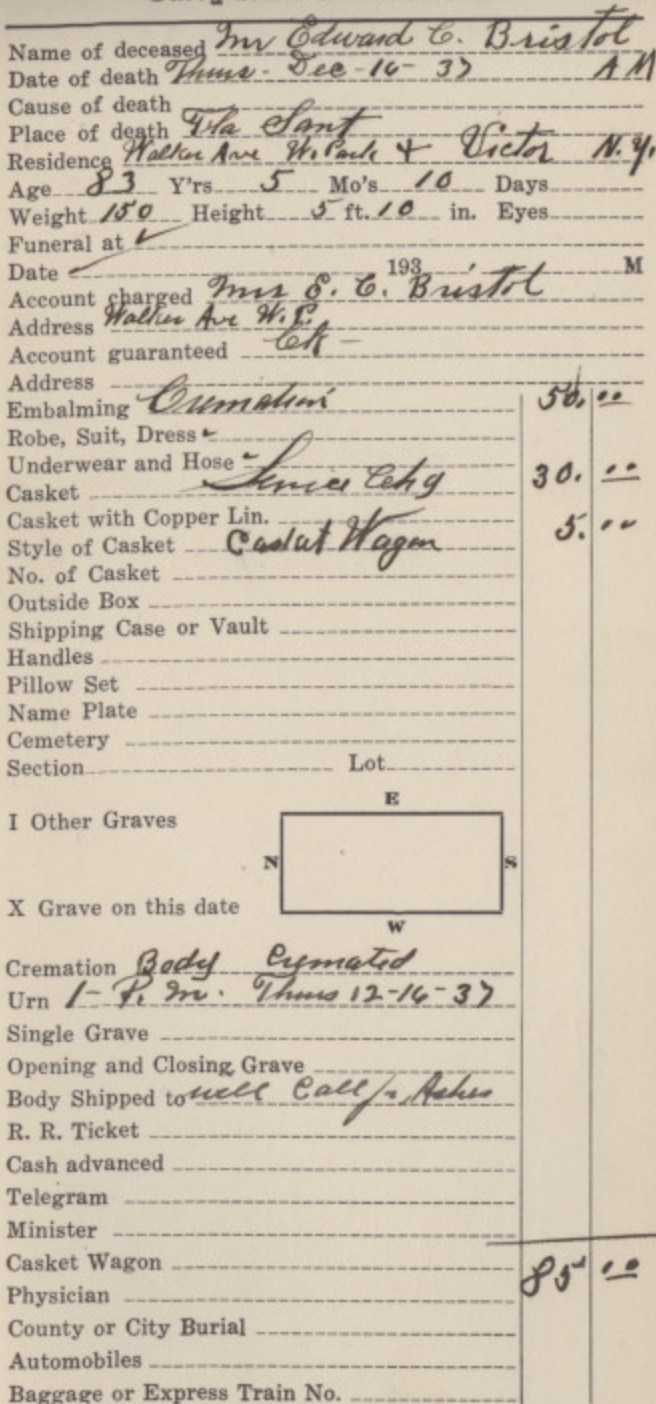 Name of deceased Mr Edward C. Bristol
Date of death Thurs - Dec - 16 - 37 A M
Cause of death
Place of death Fla Sant
Residence Walker Ave W. Park + Victor N.Y.
Age 83 Y'rs 5 Mo's 10 Days
Weight 150 Height 5 ft. 10 in. Eyes
Funeral at ✓
Date ✓ 193 M
Account charged Mrs E. C. Bristol
Address Walker Ave W. P.
Account guaranteed
Address
Embalming Cremation 50.00
Robe, Suit, Dress
Underwear and Hose
Casket Service Chg 30.00
Casket with Copper Lin.
Style of Casket Casket Wagon 5.00
No. of Casket
Outside Box
Shipping Case or Vault
Handles
Pillow Set
Name Plate
Cemetery
Section Lot
E
I Other Graves
N S
X Grave on this date
W
Cremation Body Cremated
Urn 1 - P. M. Thurs 12-16-37
Single Grave
Opening and Closing Grave
Body Shipped to will Call for Ashes
R. R. Ticket
Cash advanced
Telegram
Minister
Casket Wagon 85 00
Physician
County or City Burial
Automobiles
Baggage or Express Train No.